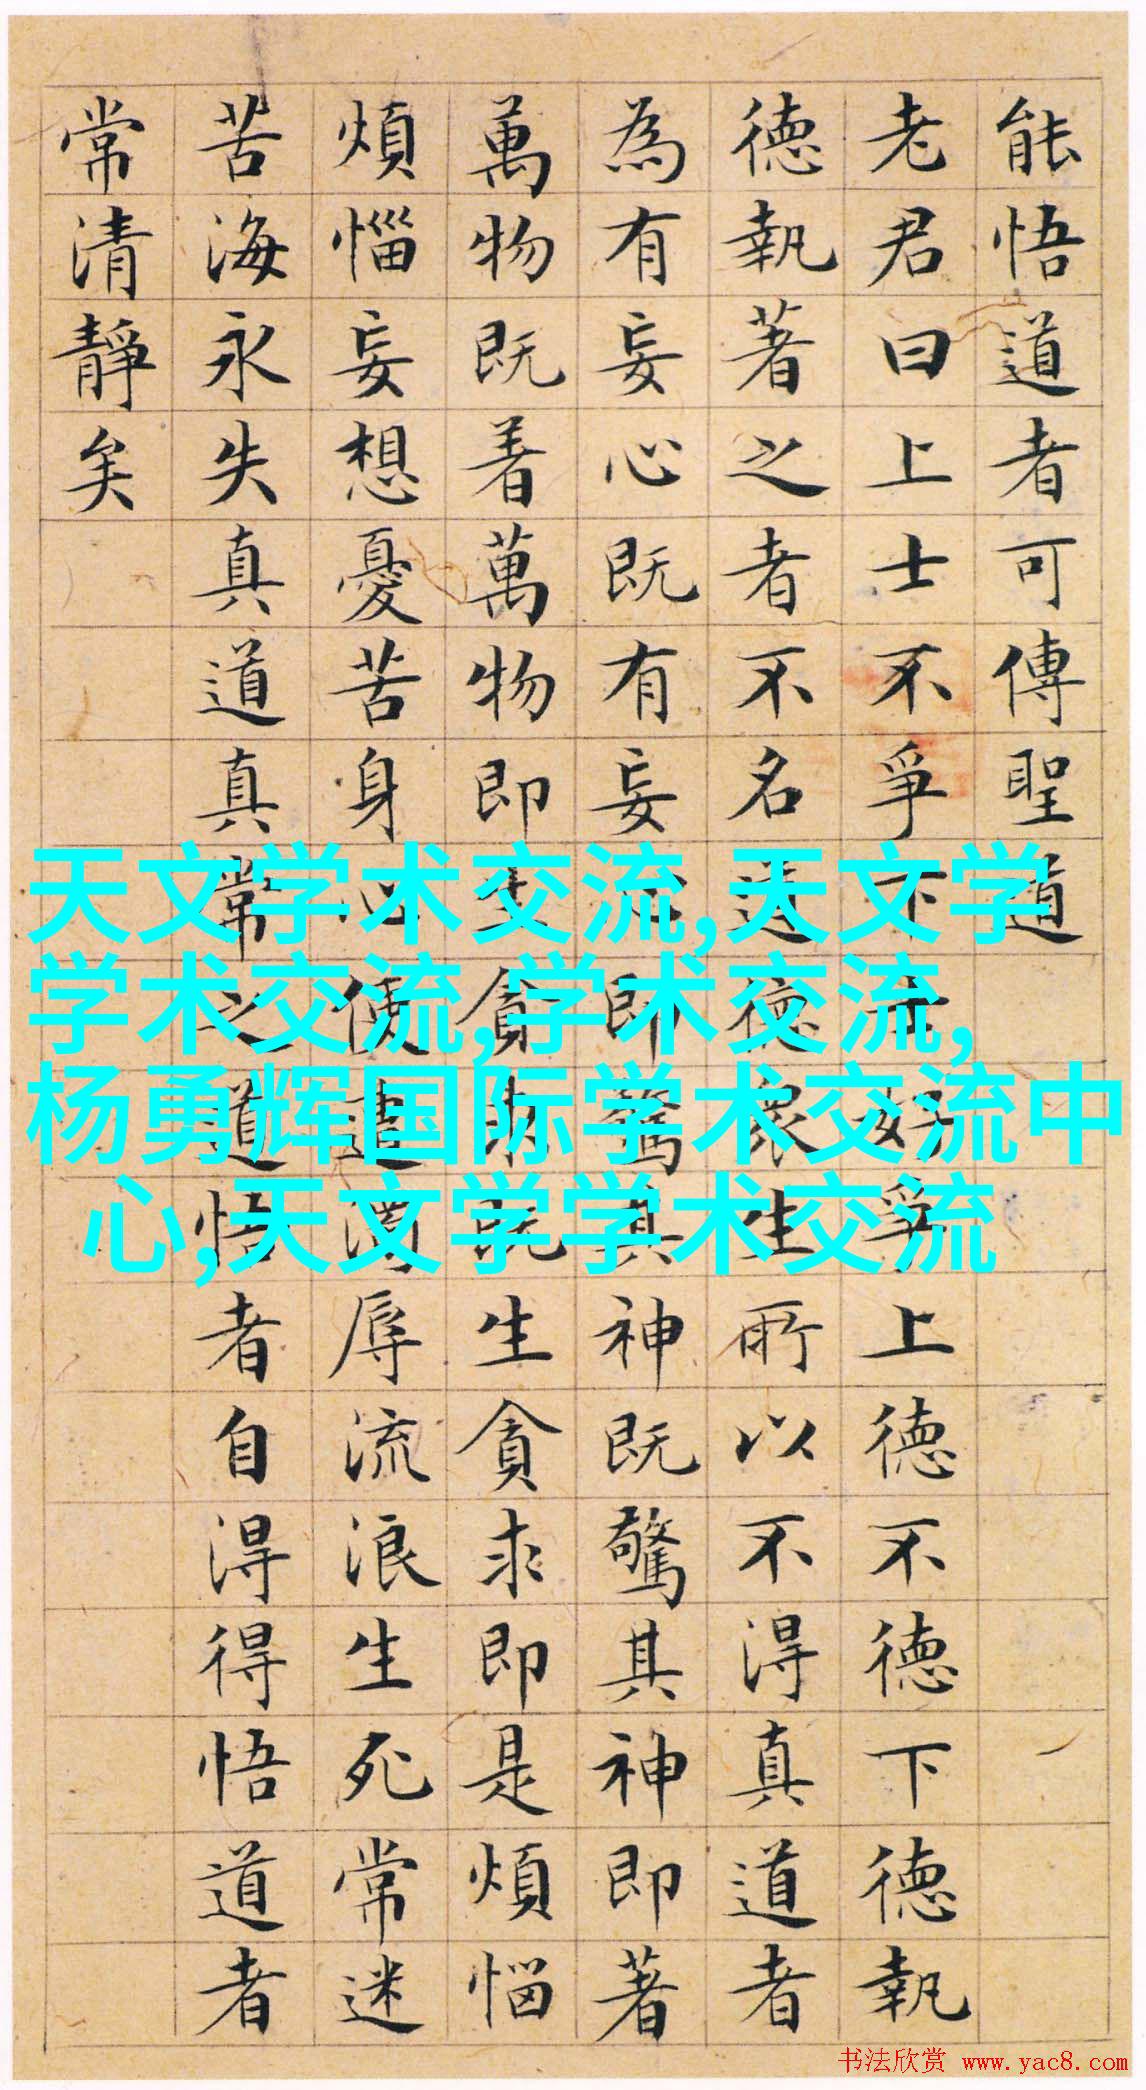 能悟道者可傳聖道
老君曰上士不爭下士好爭上德不德下德執
德執著之者不名道德衆生所以不得真道者
為有妄心既有妄心即驚其神既驚其神即著
萬物既着萬物即生貪求既生貪求即是煩惱
煩惱妄想憂苦身心便遭濁辱流浪生死常迷
苦海永失真道真常之道悟者自得得悟道者
常清靜矣
天文学术交流,天文学
学术交流,学术交流,
杨勇辉国际学术交流中
心,天文学学术交流
书法欣赏 www.yac8.com